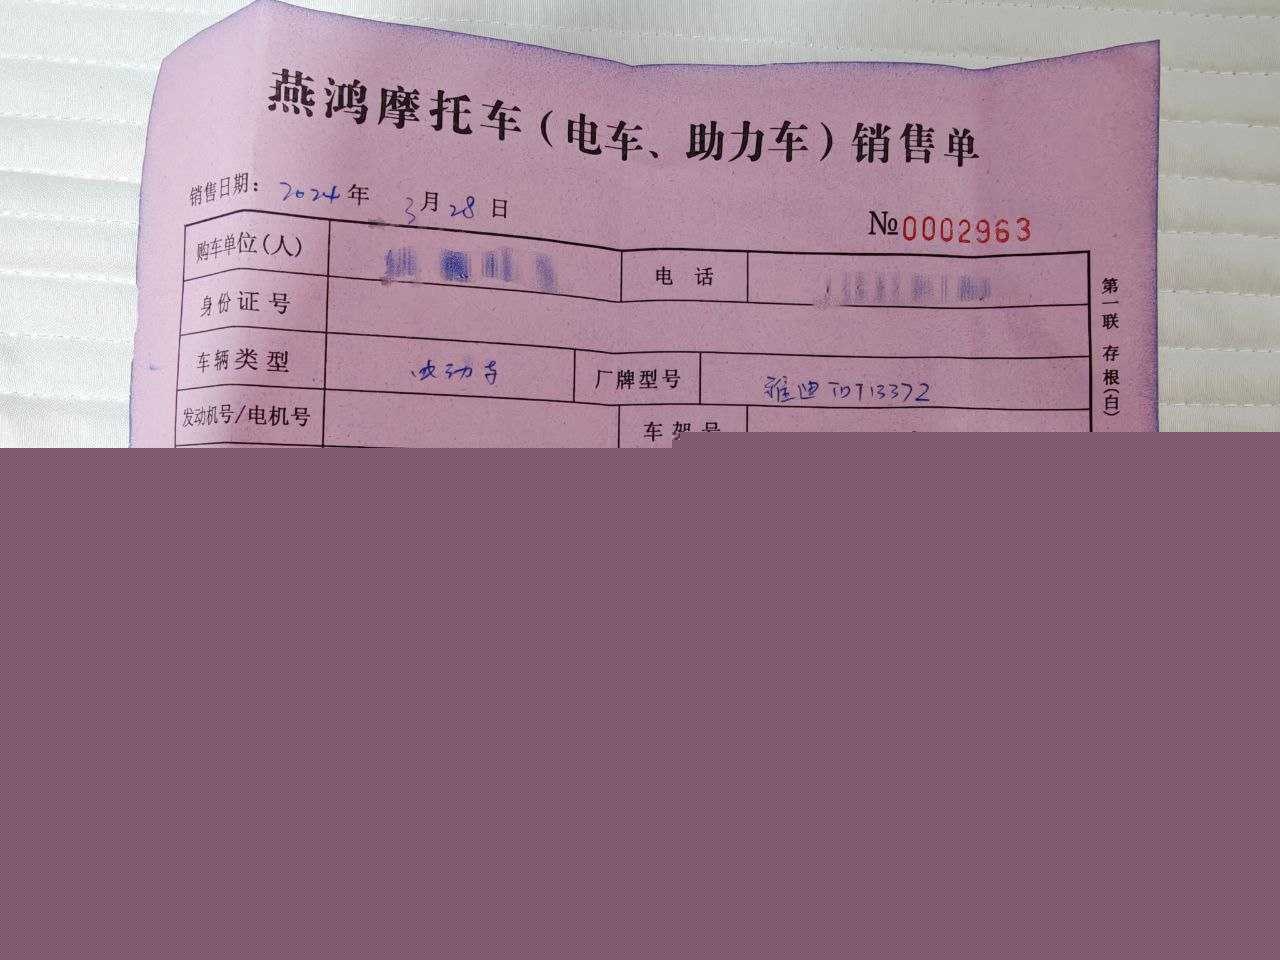 燕鸿摩托车(电车、助力车)销售单
销售日期: 2024年 3月28日
№0002963
购车单位(人) 电 话
身份证号
车辆类型 电动车 厂牌型号 雅迪
发动机号/电机号 车架号
第一联 存根(白)